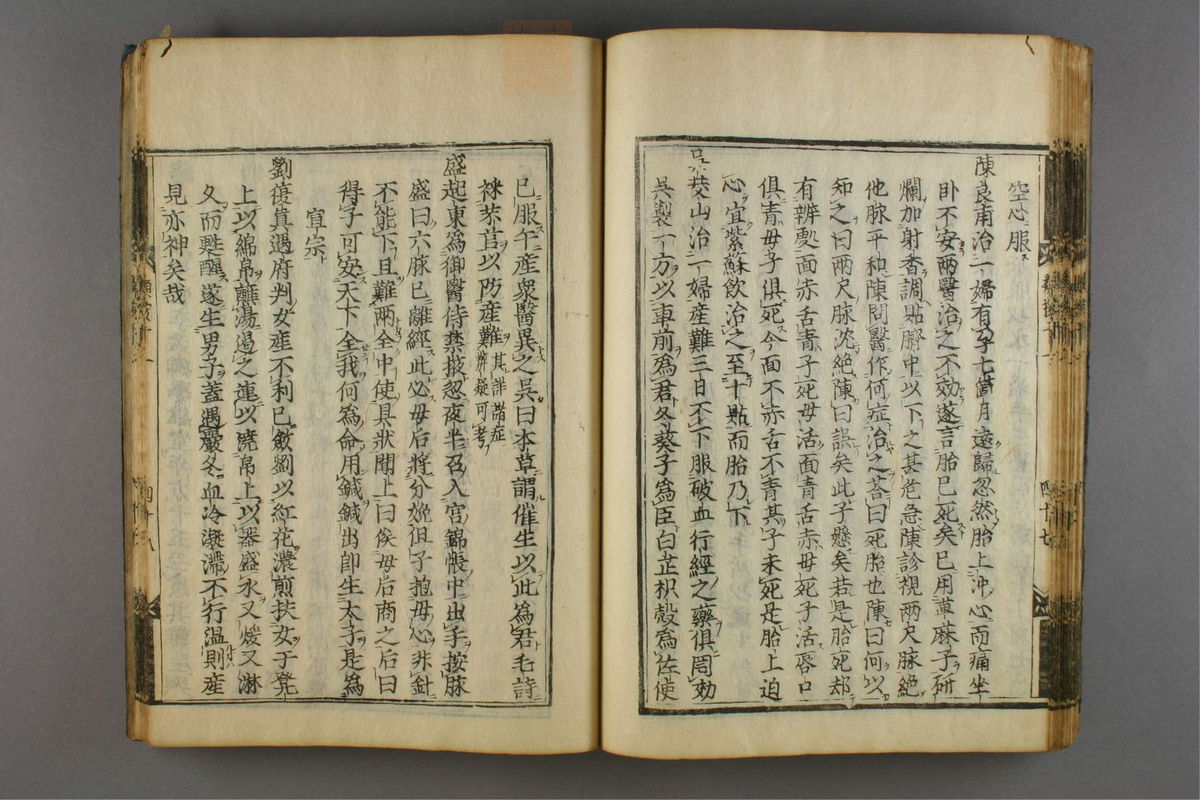 空心服
陳良甫治一婦有孕七箇月遠歸忽然胎上冲心而痛坐
臥不安兩醫治之不効遂言胎已死矣已用萆麻子研
爛加射香調貼臍中以下之甚危急陳診視兩尺脉絶
他脉平和陳問醫作何症治之荅曰死胎也陳曰何以
知之曰兩尺脉沈絶陳曰誤矣此子懸矣若是胎死却
有辨處面赤舌青子死母活面青舌赤母死子活唇口
俱青母子俱死今面不赤舌不青其子未死是胎上迫
心宜紫蘇飲治之至十貼而胎乃下
吳茭山治一婦産難三日不下服破血行經之藥俱罔効
吳製一方以車前爲君冬葵子爲臣白芷枳殼爲佐使
已服午産衆醫異之吳曰本草謂催生以此爲君毛詩
采苤苢以防産難其詳滯症辨疑可考
盛起東爲御醫侍禁掖忽夜半召入宮錦帳中出手按脉
盛曰六脉已離經此必母后將分娩但子抱母心非針
不能下且難兩全中使具狀聞上曰俟母后商之后曰
得子可安天下全我何爲命用鍼鍼出卽生太子是爲
宣宗
劉復真遇府判女産不利已斂劉以紅花濃煎扶女于凳
上以綿帛蘸湯遏之連以澆帛上以器盛水又煖又淋
久而甦醒遂生男子蓋遇嚴冬血冷凝滯不行温則産
見亦神矣哉
四十七